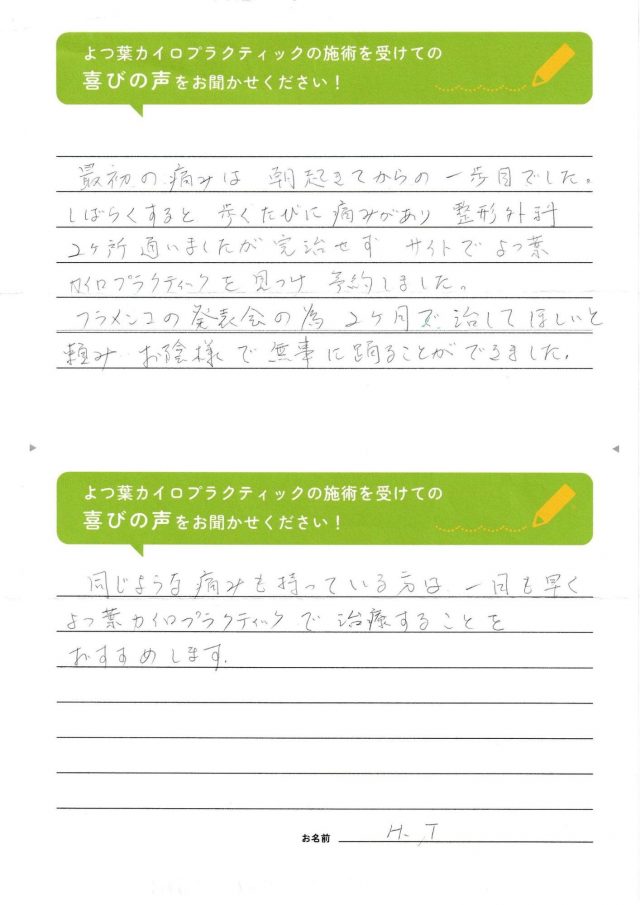 よつ葉カイロプラクティックの施術を受けての
喜びの声をお聞かせください！
最初の痛みは 朝起きてからの 一歩目でした。
しばらくすると 歩くたびに 痛みがあり 整形外科
2ヶ所 通いましたが 完治せず サイトで よつ葉
カイロプラクティックを 見つけ 予約しました。
フラメンコの 発表会の為 2ヶ月で 治してほしいと
頼み お陰様で 無事に 踊ることができました。
よつ葉カイロプラクティックの施術を受けての
喜びの声をお聞かせください！
同じような 痛みを 持っている 方は 一日も 早く
よつ葉カイロプラクティックで 治療することを
おすすめします。
お名前 H. T